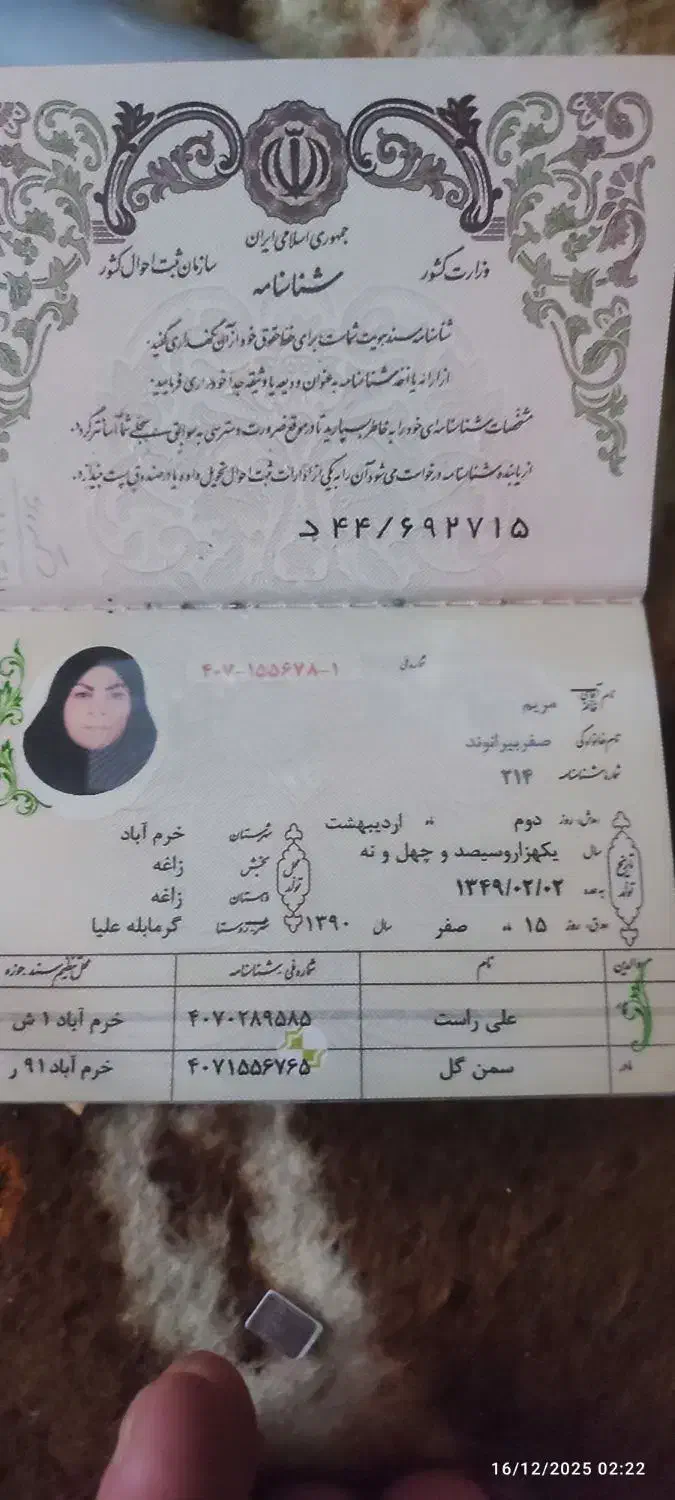 جمهوری اسلامی ایران
وزارت کشور
سازمان ثبت احوال کشور
شناسنامه
شناسنامه سند هویت شماست برای حفظ حقوق خود از آن نگهداری کنید.
از ارائه یا اخذ شناسنامه به عنوان ودیعه یا وثیقه جداً خودداری فرمایید.
مشخصات شناسنامه‌ای خود را به خاطر بسپارید تا در موقع ضرورت دسترسی به سوابق سجلی شما آسانتر گردد.
از یابنده شناسنامه درخواست می‌شود آن را به یکی از ادارات ثبت احوال تحویل داده یا در صندوق پست بیندازد.
د ۴۴/۶۹۲۷۱۵
شماره ملی ۴۰۷-۱۵۵۶۷۸-۱
نام آقای خانم مریم
نام خانوادگی صفربیرانوند
شماره شناسنامه ۲۱۴
تاریخ تولد
روز دوم ماه اردیبهشت
سال یکهزاروسیصد و چهل و نه
به عدد ۱۳۴۹/۰۲/۰۲
روز ۱۵ ماه صفر سال ۱۳۹۰
محل تولد
شهرستان خرم آباد
بخش زاغه
دهستان زاغه
شهر-روستا گرمابله علیا
نام شماره ملی-شناسنامه محل تنظیم سند-حوزه
علی راست ۴۰۷۰۲۸۹۵۸۵ خرم آباد ۱ ش
مادر سمن گل ۴۰۷۱۵۵۶۷۶۵ خرم آباد ۹۱ ر
16/12/2025 02:22